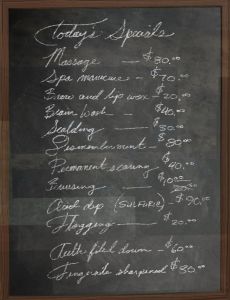 Today's Specials
Massage — $80.00
Spa manicure - $70.00
Brow and lip wax - $20.00
Brain Wash - $40.00
Scalding — $30.00
Dismemberment - $80.00
Permanent scaring - $90.00
Bruising — $10.00 20.00
Acid dip (SULFURIC) - $90.00
Flogging — $20.00
Teeth filed down - $60.00
Fingernails sharpened $30.00